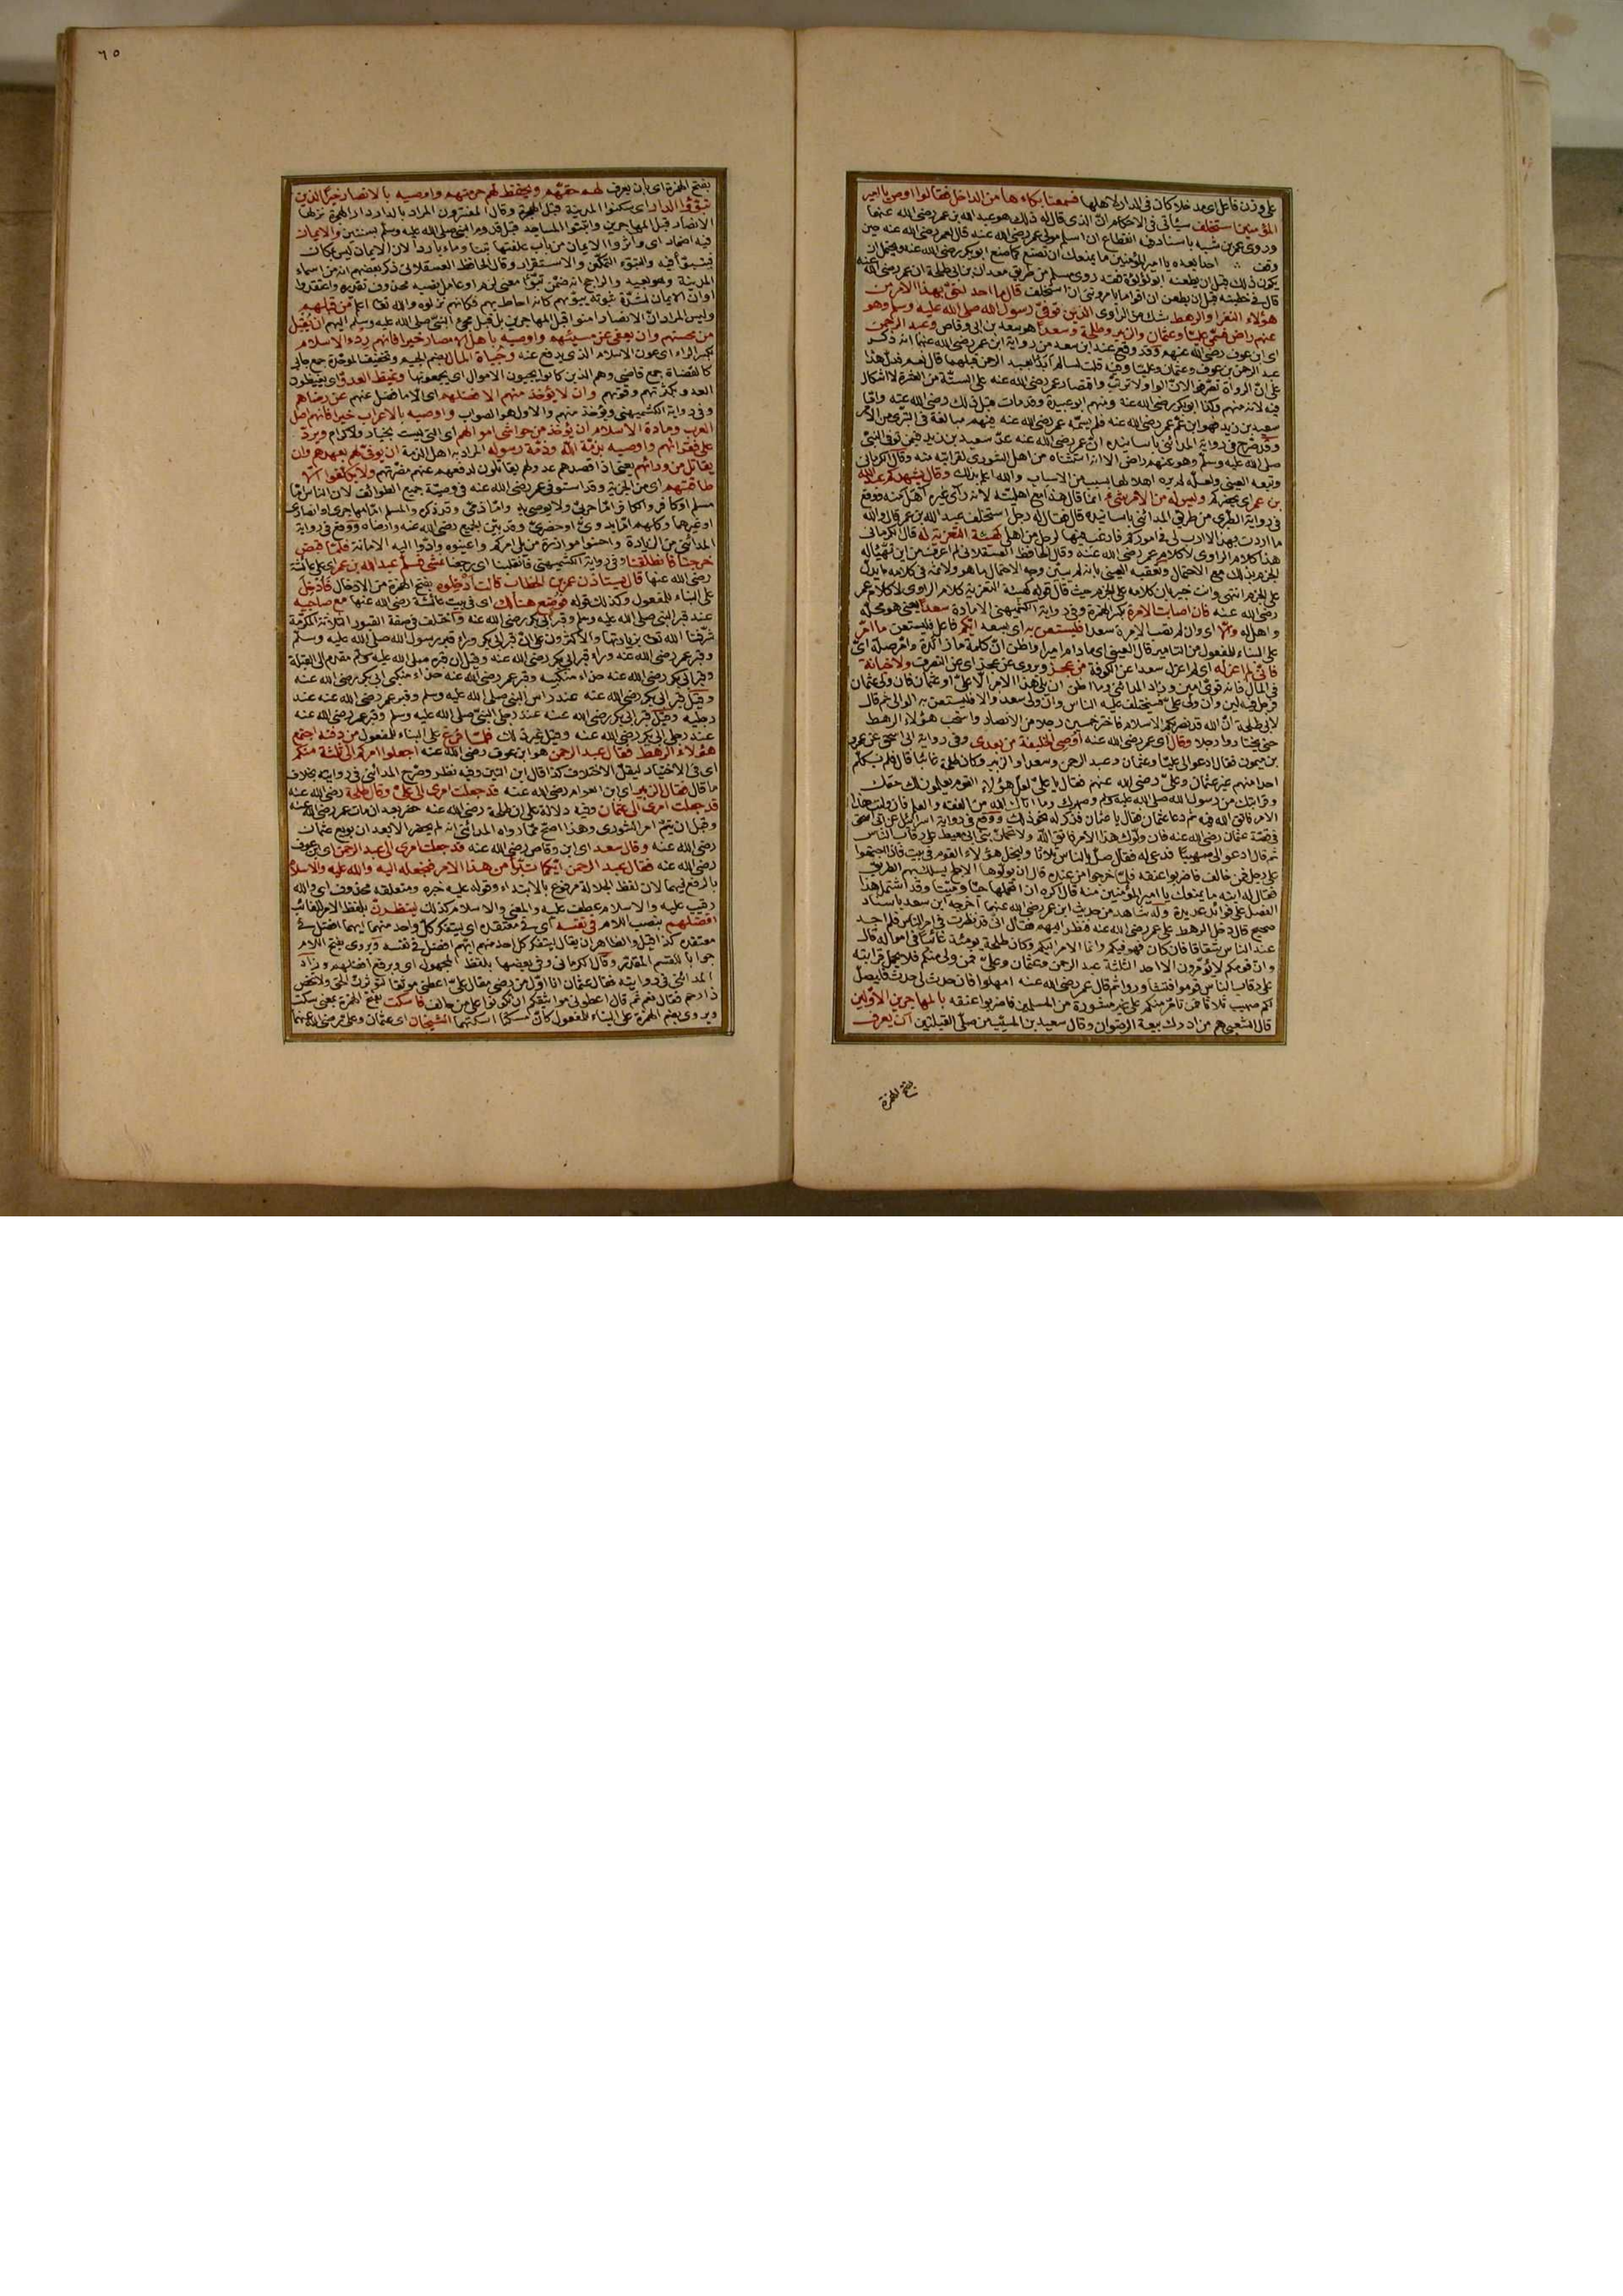 على وزن فاعل اى مدخلا كان فى الدار لاهلها فسمعنا بكاءها من الداخل فقالوا اوص يا امير
المؤمنين استخلف سيأتى فى الاحكام ان الذى قال له ذلك هو عبد الله بن عمر رضى الله عنهما
وروى عمر بن شبه باسناد فيه انقطاع ان اسلم مولى عمر رضى الله عنه قال لعمر رضى الله عنه حين
وقف احدا بعده يا امير المؤمنين ما يمنعك ان تصنع كما صنع ابو بكر رضى الله عنه ويحتمل ان
يكون ذلك قبل ان يطعنه ابو لؤلؤة فقد روى مسلم من طريق معدان بن ابى طلحة ان عمر رضى الله عنه
قال فى خطبته قبل ان يطعن ان اقواما يأمروننى ان استخلف قال ما احد احق بهذا الامر من
هؤلاء النفر او الرهط شك من الراوى الذين توفى رسول الله صلى الله عليه وسلم وهو
عنهم راض فسمى عليا وعثمان والزبير وطلحة وسعدا هو سعد بن ابى وقاص وعبد الرحمن
اى ابن عوف رضى الله عنهم وقد وقع عند ابن سعد من رواية ابن عمر رضى الله عنهما انه ذكر
عبد الرحمن بن عوف وعثمان وعليا وفيه قلت لسالم أبدأ بعبد الرحمن قبلهما قال نعم فدل هذا
على ان الرواة تصرفوا لان الواو لا ترتب واقتصار عمر رضى الله عنه على الستة من العشرة لا اشكال
فيه لانه منهم وكذا ابو بكر رضى الله عنه ومنهم ابو عبيدة وقد مات قبل ذلك رضى الله عنه واما
سعيد بن زيد فهو ابن عم عمر رضى الله عنه فلم يسمه عمر رضى الله عنه فيهم مبالغة فى التبرى من الامر
وقد صرح فى رواية المدائنى باسانيده ان عمر رضى الله عنه عد سعيد بن زيد فيمن توفى النبى
صلى الله عليه وسلم وهو عنهم راض الا انه استثناه من اهل الشورى لقرابته منه وقال الكرمانى
وتبعه العينى ولعله لم يره اهلا لها بسبب من الاسباب والله اعلم بذلك وقال يشهدكم عبد الله
بن عمر اى يحضركم وليس له من الامر شىء انما قال هذا مع اهليته لانه رأى غيره اهل منه ووقع
فى رواية الطبرى من طريق المدائنى باسانيده قال فقال له رجل استخلف عبد الله بن عمر قال والله
ما اردت بهذا الا ارب لى فى اموركم فارغب فيها لرجل من اهلى كهيئة التعزية له قال الكرمانى
هذا كلام الراوى لا كلام عمر رضى الله عنه وقال الحافظ العسقلانى لم اعرف من اين تهيأ له
الجزم بذلك مع الاحتمال وتعقبه العينى بانه لم يبين وجه الاحتمال ما هو ولا ثمة فى كلامه ما يدل
على الجزم انتهى وانت خبير بان كلامه على الجزم حيث قال قوله كهيئة التعزية كلام الراوى لا كلام عمر
رضى الله عنه فان اصابت الامرة بكسر الهمزة وفى رواية الكشميهنى الامارة سعدا يعنى هو محله
واهل له والا اى وان لم تصب الامرة سعدا فليستعن به اى بسعد ايكم فاعل فليستعن ما امر
على البناء للمفعول من التأمير قال العينى اى ما دام اميرا واظن ان كلمة ما زائدة وامر صلة اى
فانى لم اعزله اى لم اعزل سعدا عن الكوفة من عجز ويروى عن عجز اى عن التصرف ولا خيانة
فى المال فانه قوى امين وزاد المدائنى وما اظن ان يلى هذا الامر الا على او عثمان فان ولى عثمان
فرجل فيه لين وان ولى على فستختلف عليه الناس وان ولى سعد والا فليستعن به الوالى ثم قال
لابى طلحة ان الله قد نصر بكم الاسلام فاختر خمسين رجلا من الانصار واستحث هؤلاء الرهط
حتى يختاروا رجلا وقال اى عمر رضى الله عنه اوصى الخليفة من بعدى وفى رواية ابى اسحق عن عمرو
بن ميمون فقال ادعوا لى عليا وعثمان وعبد الرحمن وسعدا والزبير وكان طلحة غائبا قال فلم يكلم
احدا منهم غير عثمان وعلى رضى الله عنهم فقال يا على لعل هؤلاء القوم يعلمون لك حقك
وقرابتك من رسول الله صلى الله عليه وسلم وصهرك وما اتاك الله من الفقه والعلم فان وليت هذا
الامر فاتق الله فيه ثم دعا عثمان فقال يا عثمان فذكر له نحو ذلك ووقع فى رواية اسرائيل عن ابى اسحق
فى قصة عثمان رضى الله عنه فان ولوك هذا الامر فاتق الله ولا تحملن بنى ابى معيط على رقاب الناس
ثم قال ادعوا لى صهيبا فدعى له فقال صل بالناس ثلاثا وليخل هؤلاء القوم فى بيت فاذا اجتمعوا
على رجل فمن خالف فاضربوا عنقه فلما خرجوا من عنده قال ان يولوها الاجلح يسلك بهم الطريق
فقال له ابنه ما يمنعك يا امير المؤمنين منه قال اكره ان اتحملها حيا وميتا وقد اشتمل هذا
الفصل على فوائد عديدة وله شاهد من حديث ابن عمر رضى الله عنهما اخرجه ابن سعد باسناد
صحيح قال دخل الرهط على عمر رضى الله عنه فنظر اليهم فقال انى قد نظرت فى امر الناس فلم اجد
عند الناس شقاقا فان كان فهو فيكم وانما الامر اليكم وكان طلحة يومئذ غائبا فى امواله قال
وان قومكم لا يؤمرون الا احد الثلاثة عبد الرحمن وعثمان وعلى فمن ولى منكم فلا يحمل قرابته
على رقاب الناس قوموا فتشاوروا ثم قال عمر رضى الله عنه امهلوا فان حدث لى حدث فليصل
لكم صهيب ثلاثا فمن تأمر منكم على غير مشورة من المسلمين فاضربوا عنقه بالمهاجرين الاولين
قال الشعبى هم من ادرك بيعة الرضوان وقال سعيد بن المسيب من صلى القبلتين ان يعرف
بفتح الهمزة
٦٥
بفتح الهمزة اى بان يعرف لهم حقهم ويحفظ لهم حرمتهم واوصيه بالانصار خيرا الذين
تبوؤا الدار اى سكنوا المدينة قبل الهجرة وقال المفسرون المراد بالدار دار الهجرة نزلها
الانصار قبل المهاجرين وابتنوا المساجد قبل قدوم النبى صلى الله عليه وسلم بسنتين والايمان
فيه اضمار اى واثروا الايمان من باب علفتها تبنا وماء باردا لان الايمان ليس بمكان
فيتبوأ فيه والتبوء التمكن والاستقرار وقال الحافظ العسقلانى ذكر بعضهم انه من اسماء
المدينة وهو بعيد والراجح انه ضمن تبوؤا معنى لزم او عامل نصبه محذوف تقديره واعتقدوا
او ان الايمان لشدة ثبوته يبوئهم كأنه احاط بهم فكأنهم نزلوه والله تعالى اعلم من قبلهم
وليس المراد ان الانصار امنوا قبل المهاجرين بل قبل مجىء النبى صلى الله عليه وسلم اليهم ان يقبل
من محسنهم وان يعفى عن مسيئهم واوصيه باهل الامصار خيرا فانهم ردء الاسلام
بكسر الراء اى عون الاسلام الذى يدفع عنه وجباة المال بضم الجيم وتخفيف الموحدة جمع جابى
كالقضاة جمع قاضى وهم الذين كانوا يجبون الاموال اى يجمعونها وغيظ العدو اى يغيظون
العدو بكثرتهم وقوتهم وان لا يؤخذ منهم الا فضلهم اى الا ما فضل عنهم عن رضاهم
وفى رواية الكشميهنى ويؤخذ منهم والاول هو الصواب واوصيه بالاعراب خيرا فانهم اصل
العرب ومادة الاسلام ان يؤخذ من حواشى اموالهم اى التى ليست بخيار ولا كرام ويرد
على فقرائهم واوصيه بذمة الله وذمة رسوله المراد به اهل الذمة ان يوفى لهم بعهدهم وان
يقاتل من ورائهم يعنى اذا قصدهم عدو لهم يقاتلون لدفعهم عنهم مضرتهم ولا يكلفوا الا
طاقتهم اى من الجزية وقد استوفى عمر رضى الله عنه فى وصيته جميع الطوائف لان الناس اما
مسلم او كافر والكافر اما حربى ولا يوصى به واما ذمى وقد ذكره والمسلم اما مهاجرى او انصارى
او غيرهما وكلهم اما بدوى او حضرى وقد بين الجميع رضى الله عنه وارضاه ووقع فى رواية
المدائنى من الزيادة واحسنوا موازرة من يلى امركم واعينوه وادوا اليه الامانة فلما قبض
خرجنا به فانطلقنا وفى رواية الكشميهنى فانقلبنا اى رجعنا نمشى فسلم عبد الله بن عمر اى على عائشة
رضى الله عنها قال يستأذن عمر بن الخطاب قالت ادخلوه بفتح الهمزة من الادخال فادخل
على البناء للمفعول وكذلك قوله فوضع هنالك اى فى بيت عائشة رضى الله عنها مع صاحبيه
عند قبر النبى صلى الله عليه وسلم وقبر ابى بكر رضى الله عنه واختلف فى صفة القبور الثلاثة المكرمة
شرفنا الله تعالى بزيارتها والاكثرون على ان قبر ابى بكر وراء قبر رسول الله صلى الله عليه وسلم
وقبر عمر رضى الله عنه وراء قبر ابى بكر رضى الله عنه وقيل ان قبره صلى الله عليه وسلم مقدم الى القبلة
وقبر ابى بكر رضى الله عنه حذاء منكبيه وقبر عمر رضى الله عنه حذاء منكبى ابى بكر رضى الله عنه
وقيل قبر ابى بكر رضى الله عنه عند رأس النبى صلى الله عليه وسلم وقبر عمر رضى الله عنه عند
رجليه وقيل قبر ابى بكر رضى الله عنه عند رجل النبى صلى الله عليه وسلم وقبر عمر رضى الله عنه
عند رجلى ابى بكر رضى الله عنه وقيل غير ذلك فلما فرغ على البناء للمفعول من دفنه اجتمع
هؤلاء الرهط فقال عبد الرحمن هو ابن عوف رضى الله عنه اجعلوا امركم الى ثلثة منكم
اى فى الاختيار ليقل الاختلاف كذا قال ابن التين وفيه نظر وصرح المدائنى فى روايته بخلاف
ما قال فقال الزبير اى ابن العوام رضى الله عنه قد جعلت امرى الى على وقال طلحة رضى الله عنه
قد جعلت امرى الى عثمان وفيه دلالة على ان طلحة رضى الله عنه حضر بعد ان مات عمر رضى الله عنه
وقبل ان يتم امر الشورى وهذا اصح مما رواه المدائنى انه لم يحضر الا بعد ان بويع عثمان
رضى الله عنه وقال سعد اى ابن وقاص رضى الله عنه قد جعلت امرى الى عبد الرحمن اى ابن عوف
رضى الله عنه فقال عبد الرحمن ايكما تبرأ من هذا الامر فنجعله اليه والله عليه والاسلام
بالرفع فيهما لان لفظ الجلالة مرفوع بالابتداء وقوله عليه خبره ومتعلقه محذوف اى والله
رقيب عليه والاسلام عطف عليه والمعنى والاسلام كذلك لينظرن بلفظ الامر للغائب
افضلهم بنصب اللام فى نفسه اى فى معتقده اى ليتفكر كل واحد منهما ايهما افضل فى
معتقده كذا قيل والظاهر ان يقال ليتفكر كل احد منهم ايهم افضل فى نفسه ويروى بفتح اللام
جوابا للقسم المقدر وقال الكرمانى وفى بعضها بلفظ المجهول اى ويرفع افضلهم وزاد
المدائنى فى روايته فقال عثمان انا اول من رضى فقال على اعطنى موثقا لتؤثرن الحق ولا تخص
ذا رحم فقال نعم ثم قال اعطونى مواثيقكم ان تكونوا على من خالف فاسكت بفتح الهمزة بمعنى سكت
ويروى بضم الهمزة على البناء للمفعول كأن مسكتا اسكتهما الشيخان اى عثمان وعلى رضى الله عنهما